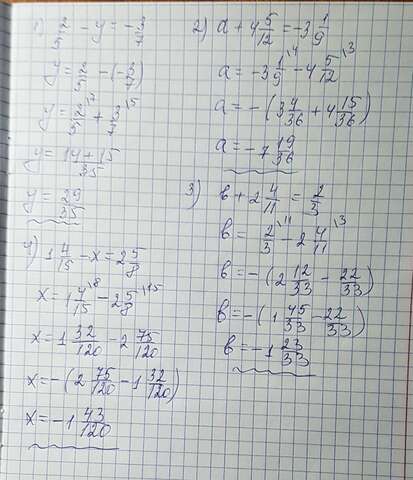 1) 2/5 - y = -3/7
y = 2/5 - (-3/7)
y = 2/5\7 + 3/7\5
y = 14+15/35
y = 29/35
4) 1 4/15 - x = 2 5/8
x = 1 4/15\8 - 2 5/8\15
x = 1 32/120 - 2 75/120
x = -(2 75/120 - 1 32/120)
x = -1 43/120
2) a + 4 5/12 = -3 1/9
a = -3 1/9\4 - 4 5/12\3
a = -(3 4/36 + 4 15/36)
a = -7 19/36
3) b + 2 4/11 = 2/3
b = 2/3\11 - 2 4/11\3
b = -(2 12/33 - 22/33)
b = -(1 45/33 - 22/33)
b = -1 23/33